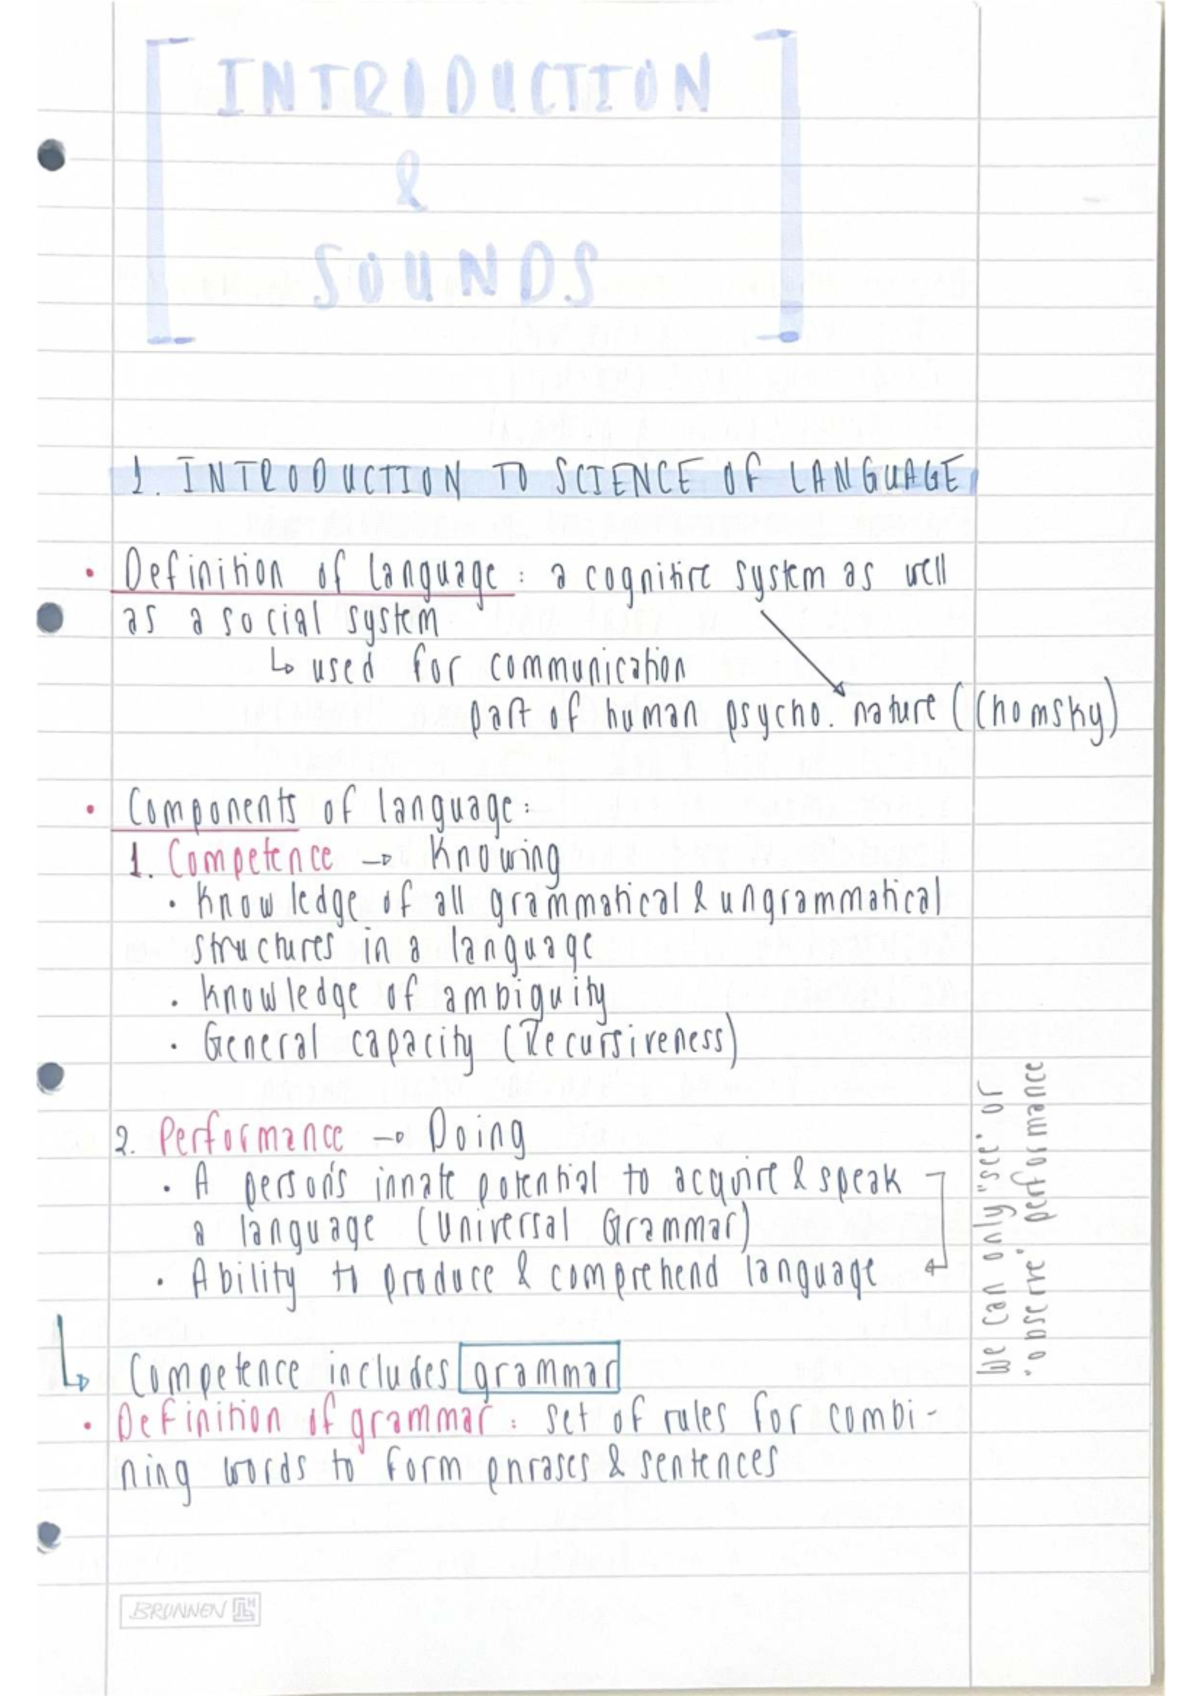 INTRODUCTION
&
SOUNDS
1. INTRODUCTION TO SCIENCE OF LANGUAGE
• Definition of language: a cognitive system as well
as a social system
↳ used for communication
part of human psycho. nature (Chomsky)
• Components of language:
1. Competence → Knowing
• Knowledge of all grammatical & ungrammatical
structures in a language
• Knowledge of ambiguity
• General capacity (Recursiveness)
2. Performance → Doing
• A person's innate potential to acquire & speak
a language (Universal Grammar)
• Ability to produce & comprehend language
We can only "see" or
"observe" performance
↳ Competence includes grammar
• Definition of grammar: set of rules for combi-
ning words to form phrases & sentences
BRUNNEN